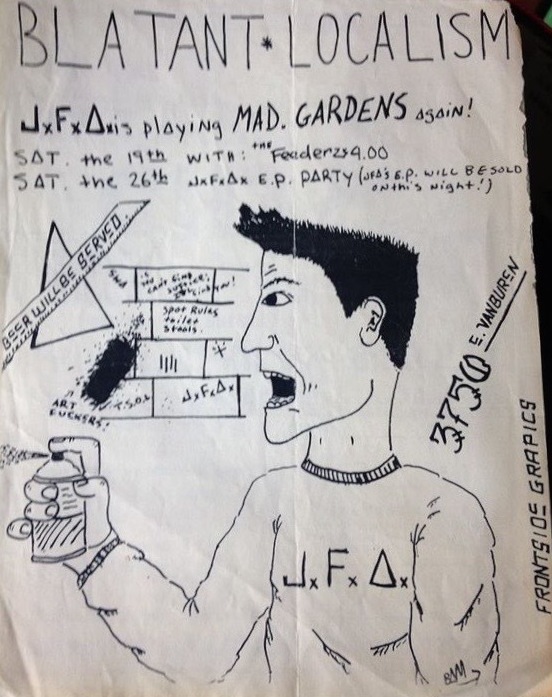 BLATANT * LOCALISM
JxFxΔx is playing MAD. GARDENS again!
SAT. the 19th WITH: the Feederz $4.00
SAT. the 26th JxFxΔx E.P. PARTY (JFA's E.P. WILL BE SOLD
on this night!)
BEER WILL BE SERVED.
Spot Rules
toilet
Stools.
JxFxΔx
T.S.O.L
ART
FUCKERS!
3750 E. VANBUREN
FRONTSIDE GRAPICS
JxFxΔx
BAM